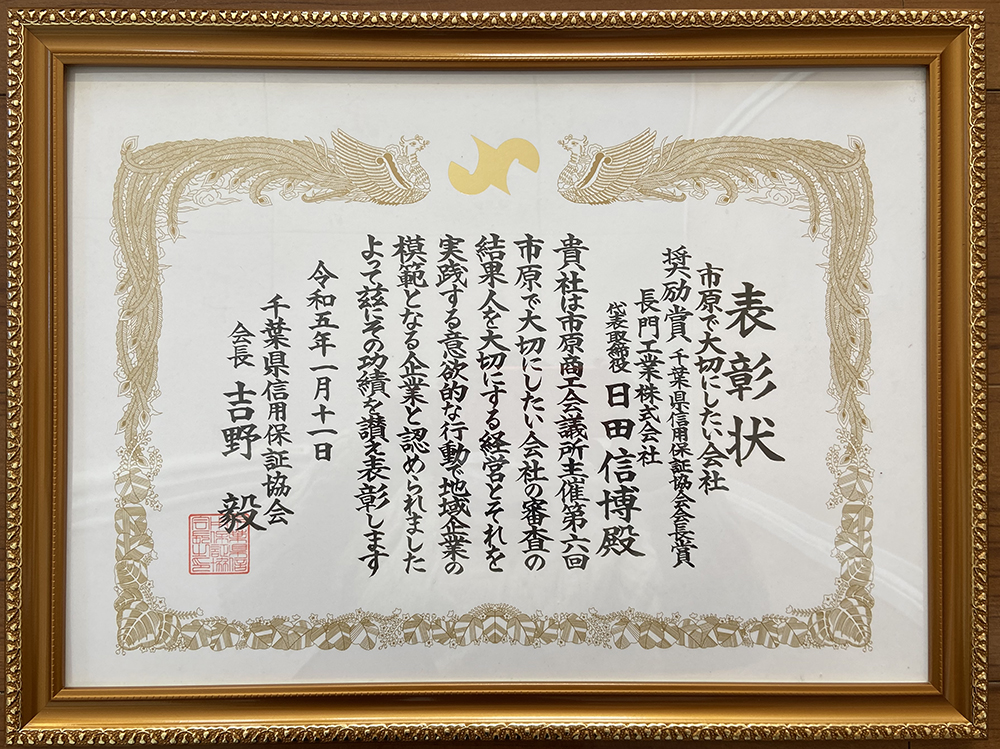 表彰状
市原で大切にしたい会社
奨励賞 千葉県信用保証協会会長賞
長門工業株式会社
代表取締役 日田信博殿
貴社は市原商工会議所主催第六回
市原で大切にしたい会社の審査の
結果人を大切にする経営とそれを
実践する意欲的な行動で地域企業の
模範となる企業と認められました
よって茲にその功績を讃え表彰します
令和五年一月十一日
千葉県信用保証協会
会長 吉野 毅